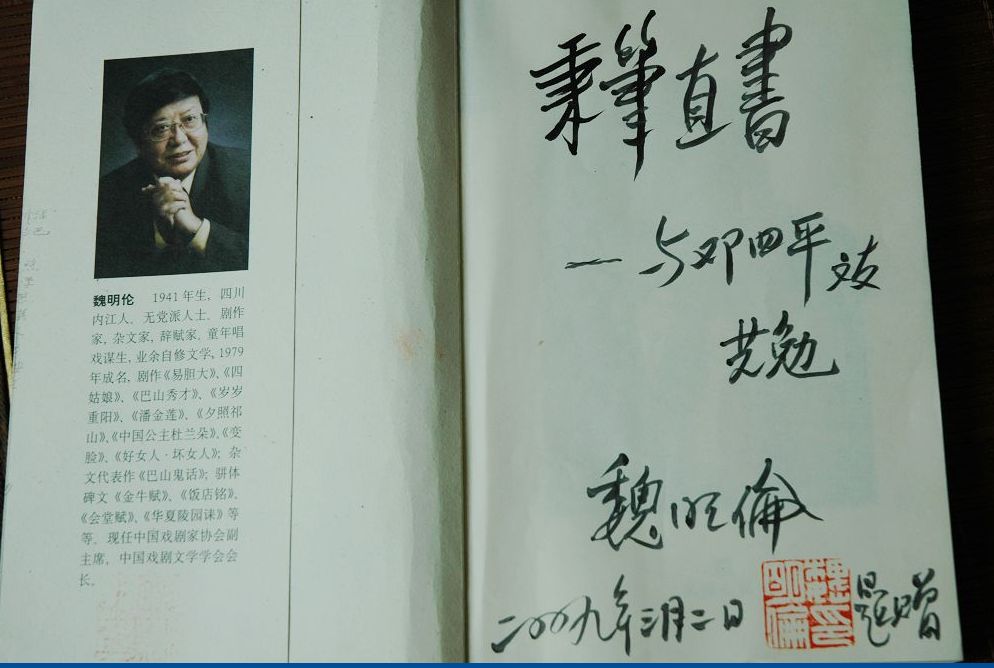 魏明伦 1941年生，四川
内江人。无党派人士。剧作
家，杂文家，辞赋家。童年唱
戏谋生，业余自修文学，1979
年成名，剧作《易胆大》、《四
姑娘》、《巴山秀才》、《岁岁
重阳》、《潘金莲》、《夕照祁
山》、《中国公主杜兰朵》、《变
脸》、《好女人·坏女人》；杂
文代表作《巴山鬼话》；骈体
碑文《金牛赋》、《饭店铭》、
《会堂赋》、《华夏陵园诔》等
等。现任中国戏剧家协会副
主席，中国戏剧文学学会会
长。
秉筆直書
——与邓四平文友
共勉
魏明倫
二00九年三月二日 题赠